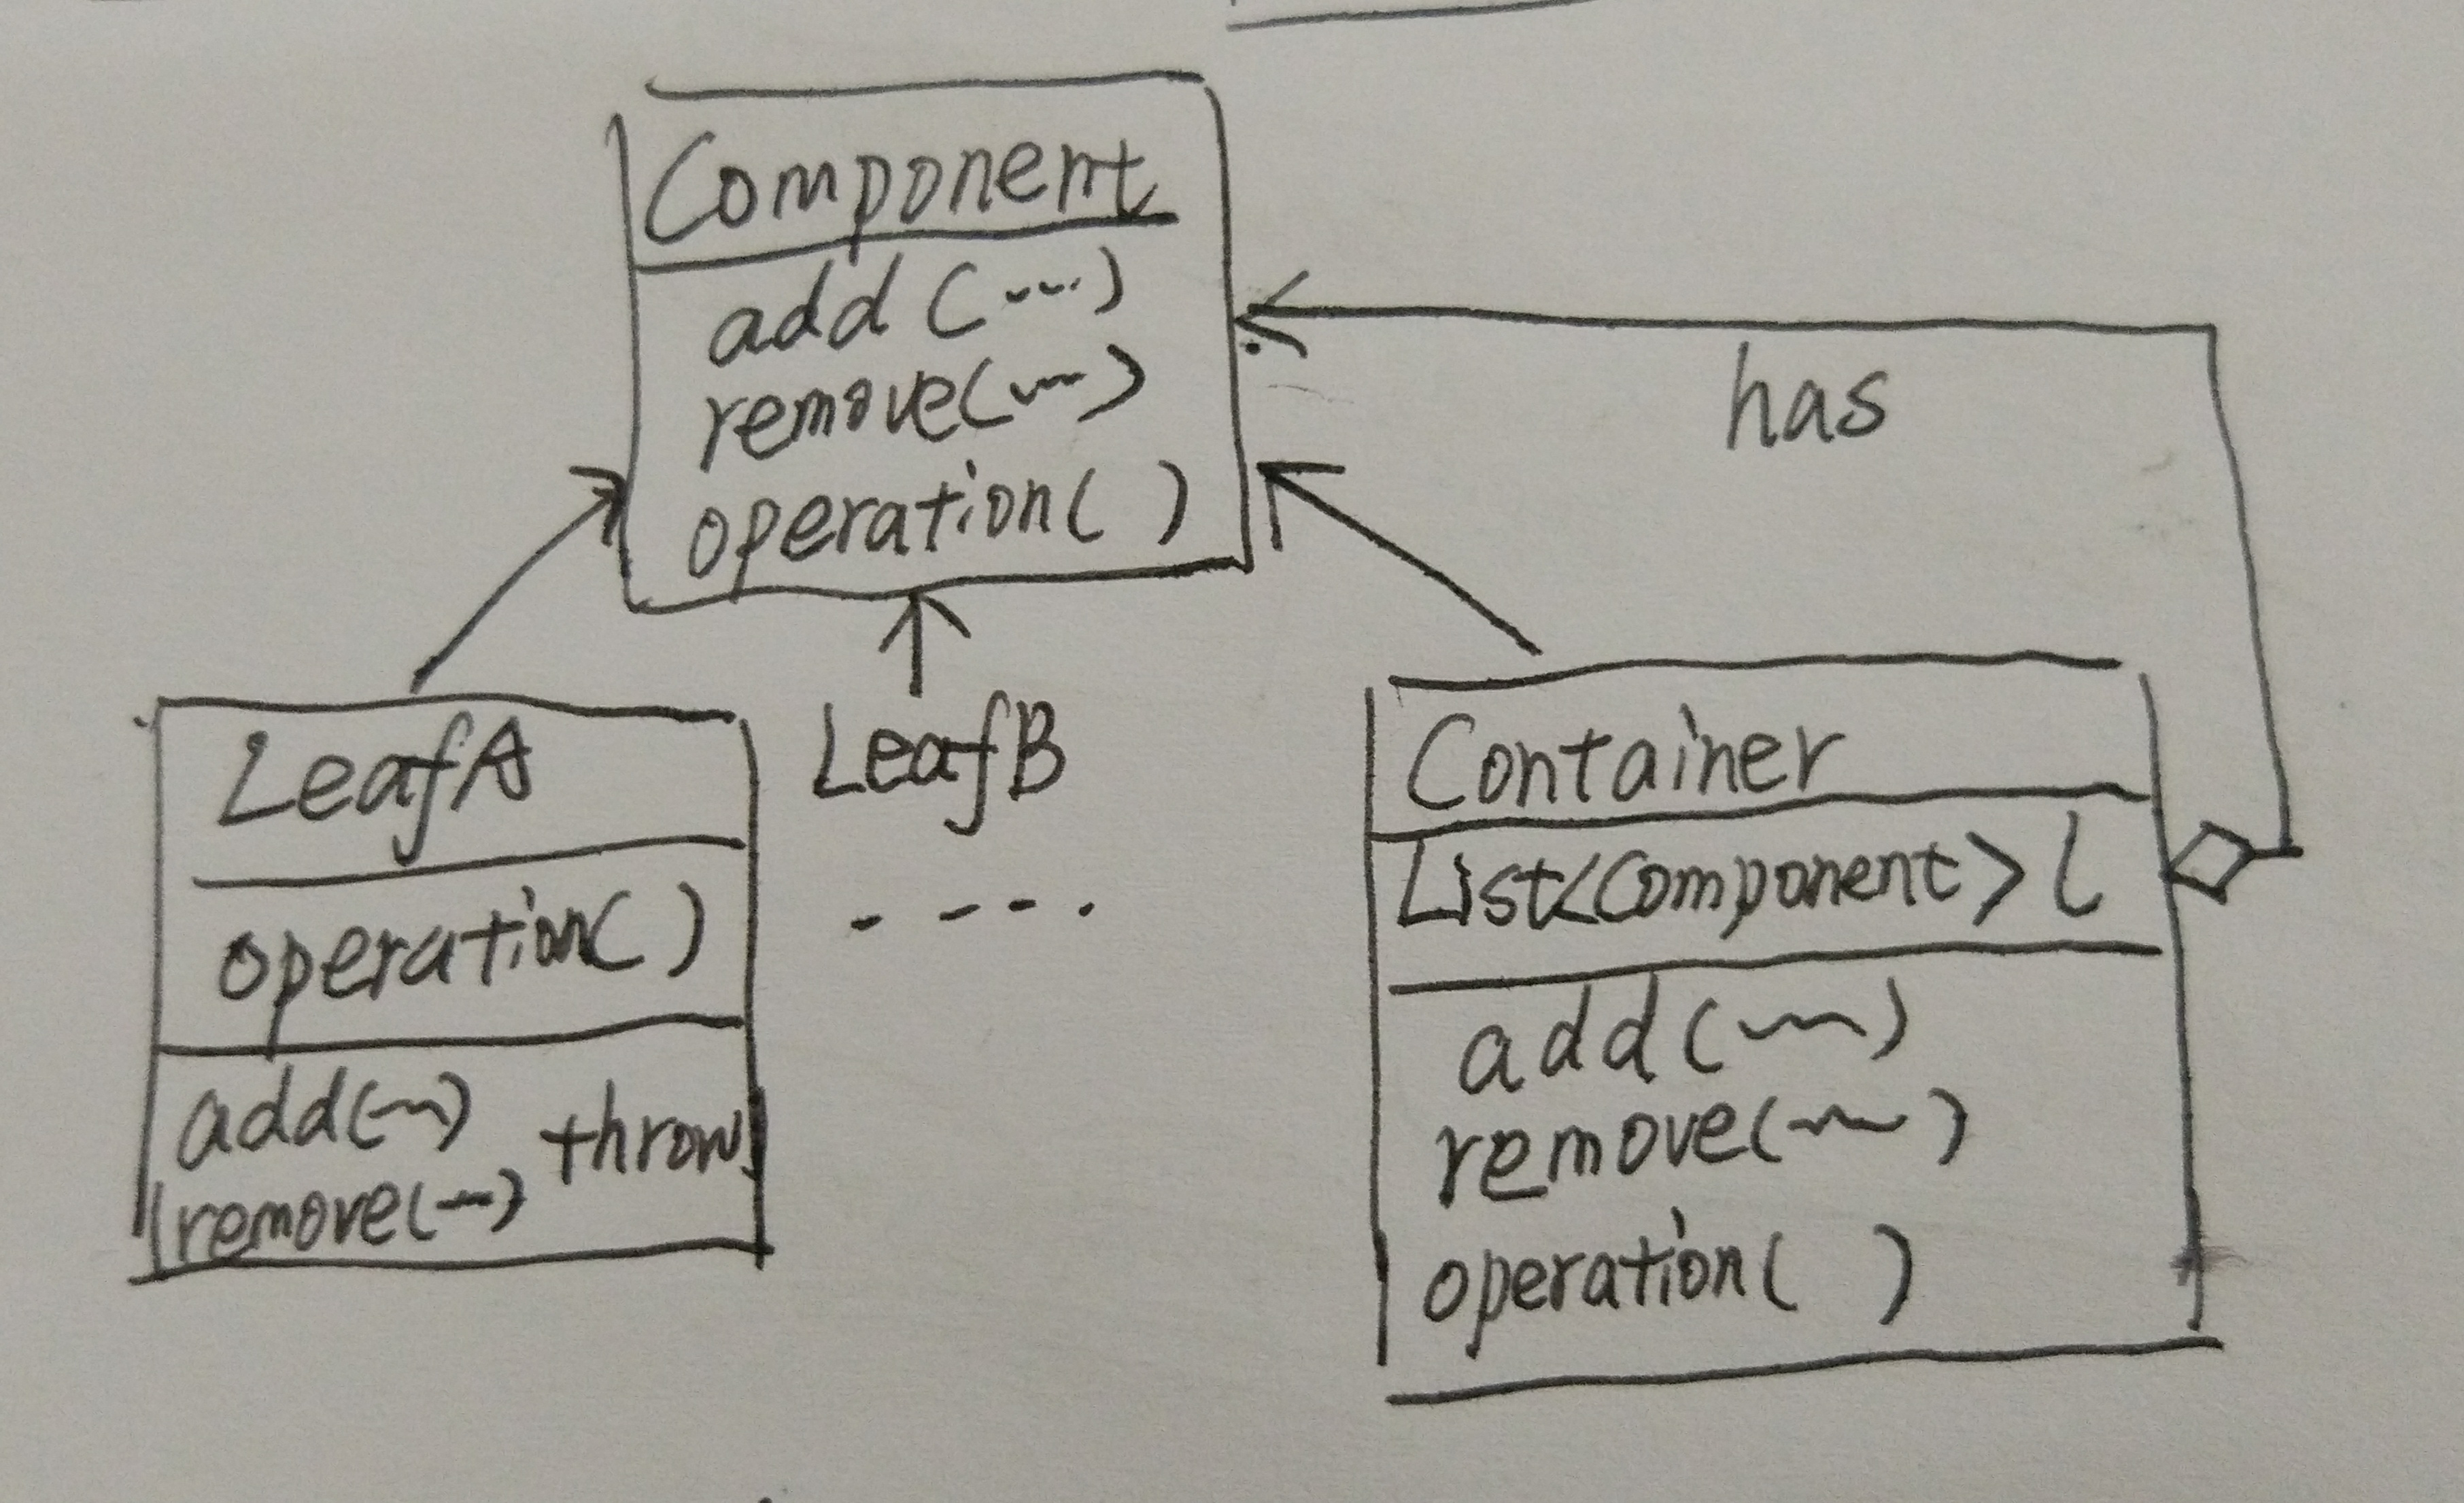 Component
add(...)
remove(...)
operation( )
has
LeafA
operation( )
add(...)
remove(...)
throw
LeafB
Container
List<Component> l
add(...)
remove(...)
operation( )